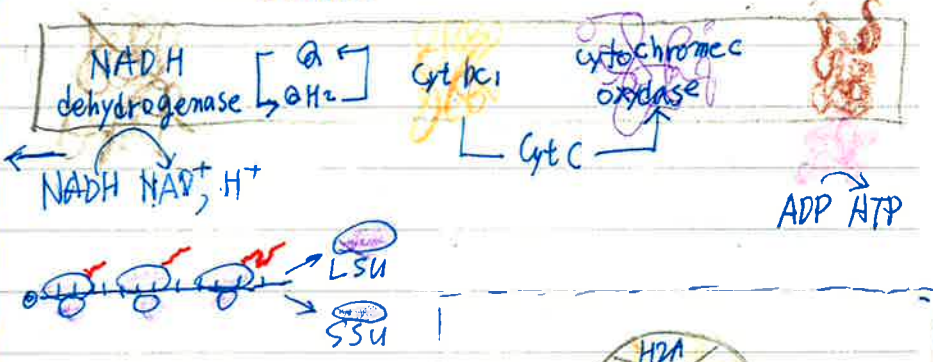 NADH
dehydrogenase
Q
QH2
Cyt bc1
cytochrome c
oxydase
Cyt C
NADH NAD+, H+
ADP ATP
LSU
SSU
H2A